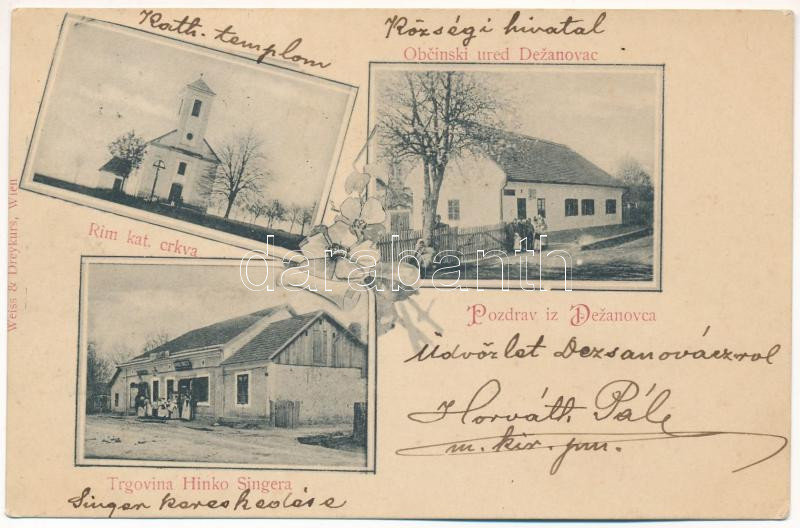 Kath. templom
Községi hivatal
Občinski ured Dežanovac
Rim kat. crkva
Weiss & Dreykurs, Wien
darabanth
Pozdrav iz Dežanovca
Üdvözlet Dezsanováczrol
Horváth Pále
m. kir. pm.
Trgovina Hinko Singera
Singer kereskedése